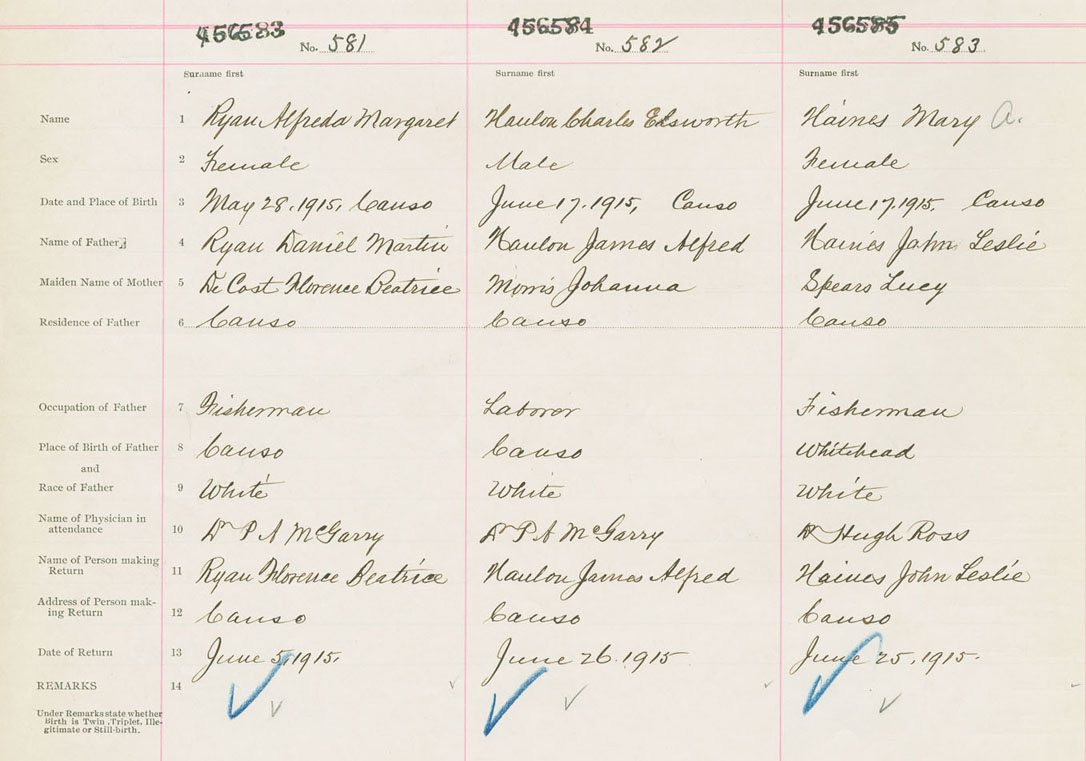 456583 456584 456585
No. 581 No. 582 No. 583
Surname first Surname first Surname first
Name 1 Ryan Alfreda Margaret Hanlon Charles Edsworth Haines Mary A.
Sex 2 Female Male Female
Date and Place of Birth 3 May 28. 1915, Canso June 17. 1915, Canso June 17. 1915, Canso
Name of Father 4 Ryan Daniel Martin Hanlon James Alfred Haines John Leslie
Maiden Name of Mother 5 De Cost Florence Beatrice Morris Johanna Spears Lucy
Residence of Father 6 Canso Canso Canso
Occupation of Father 7 Fisherman Laboror Fisherman
Place of Birth of Father 8 Canso Canso Whitehead
and
Race of Father 9 White White White
Name of Physician in
attendance 10 Dr P A McGarry Dr P A McGarry Dr Hugh Ross
Name of Person making
Return 11 Ryan Florence Beatrice Hanlon James Alfred Haines John Leslie
Address of Person mak-
ing Return 12 Canso Canso Canso
Date of Return 13 June 5, 1915. June 26. 1915 June 25. 1915.
REMARKS 14
Under Remarks state whether
Birth is Twin, Triplet, Ille-
gitimate or Still-birth.